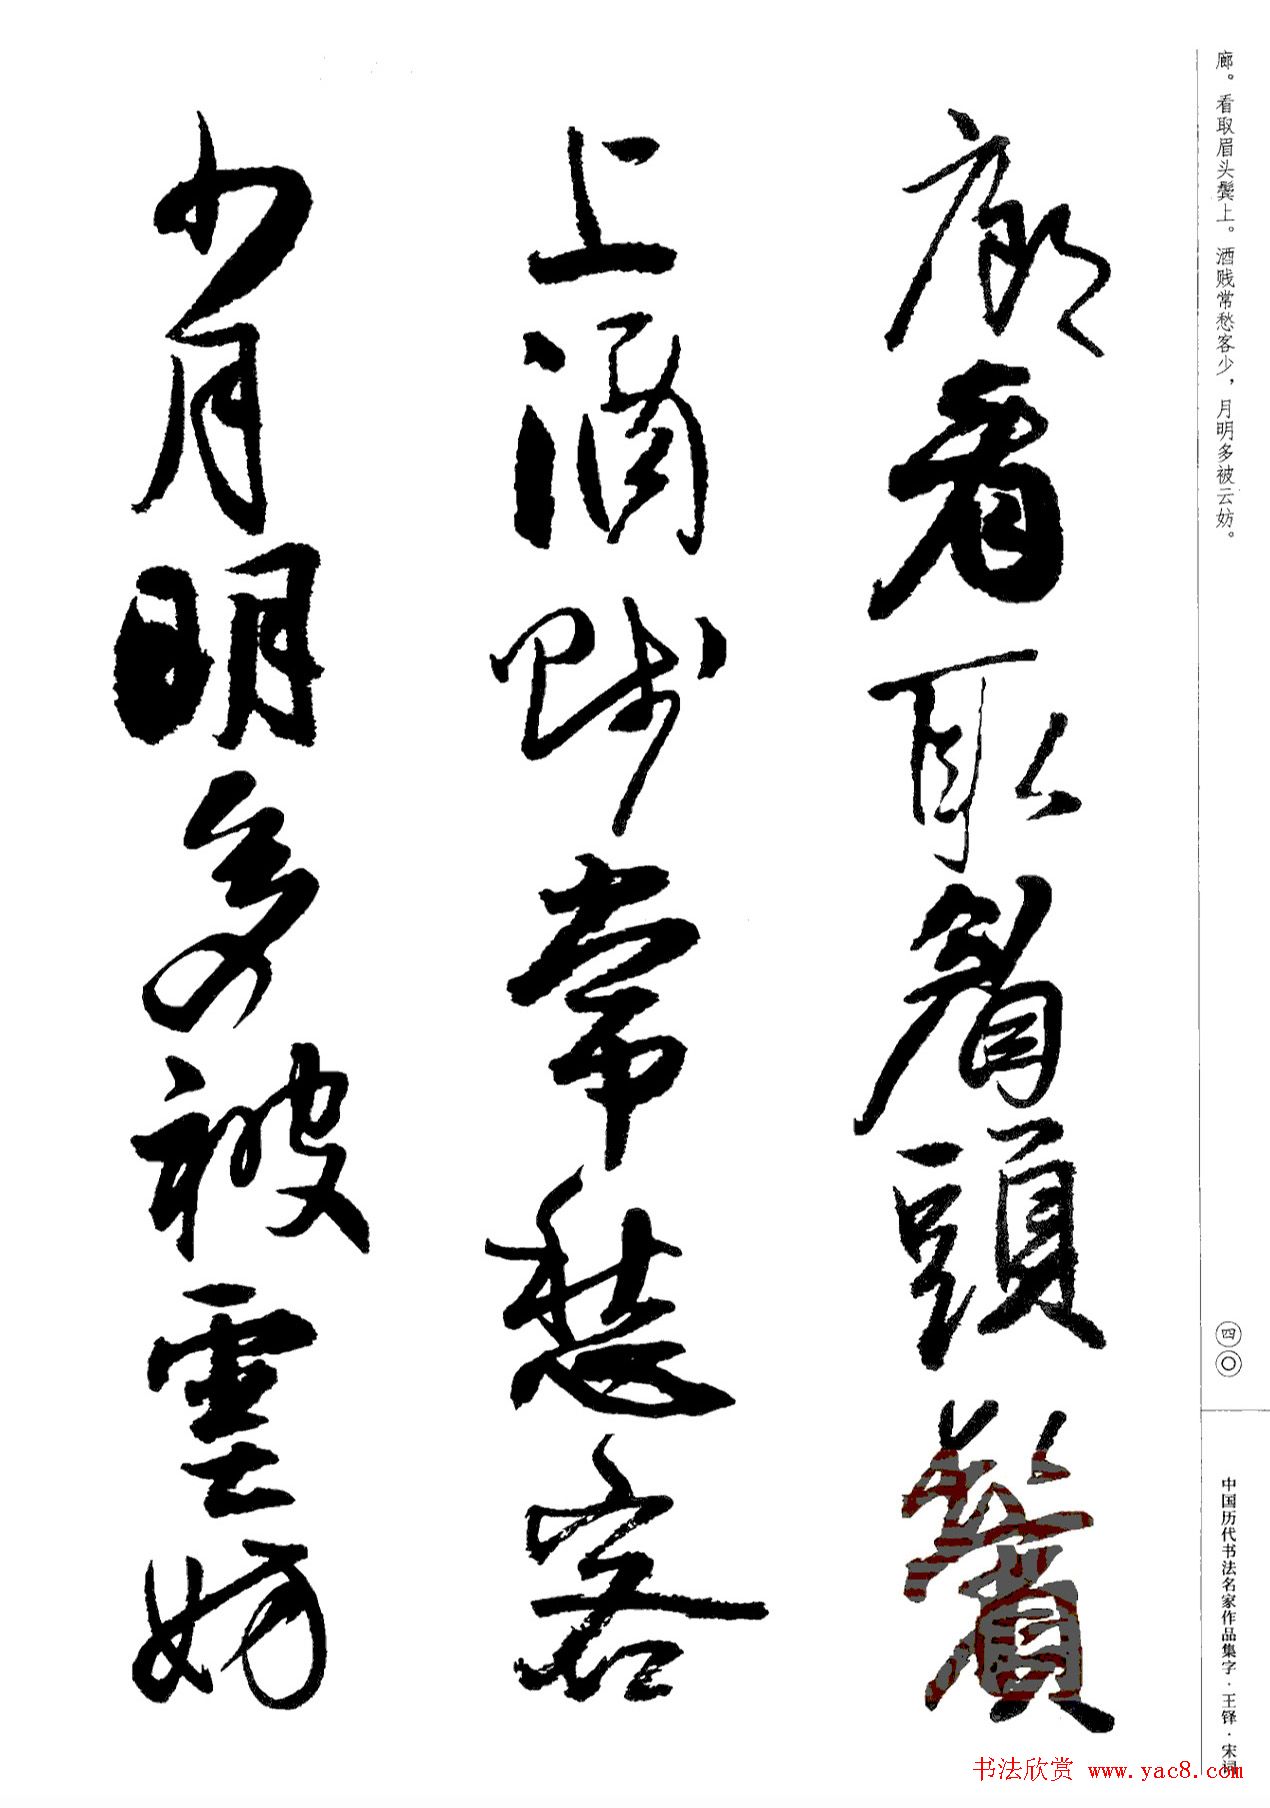 廊。看取眉头鬓上。酒贱常愁客少，月明多被云妨。
廊看取眉頭鬢
上酒賤常愁客
少月明多被雲妨
四〇
中国历代书法名家作品集字·王铎·宋词
书法欣赏 www.yac8.com